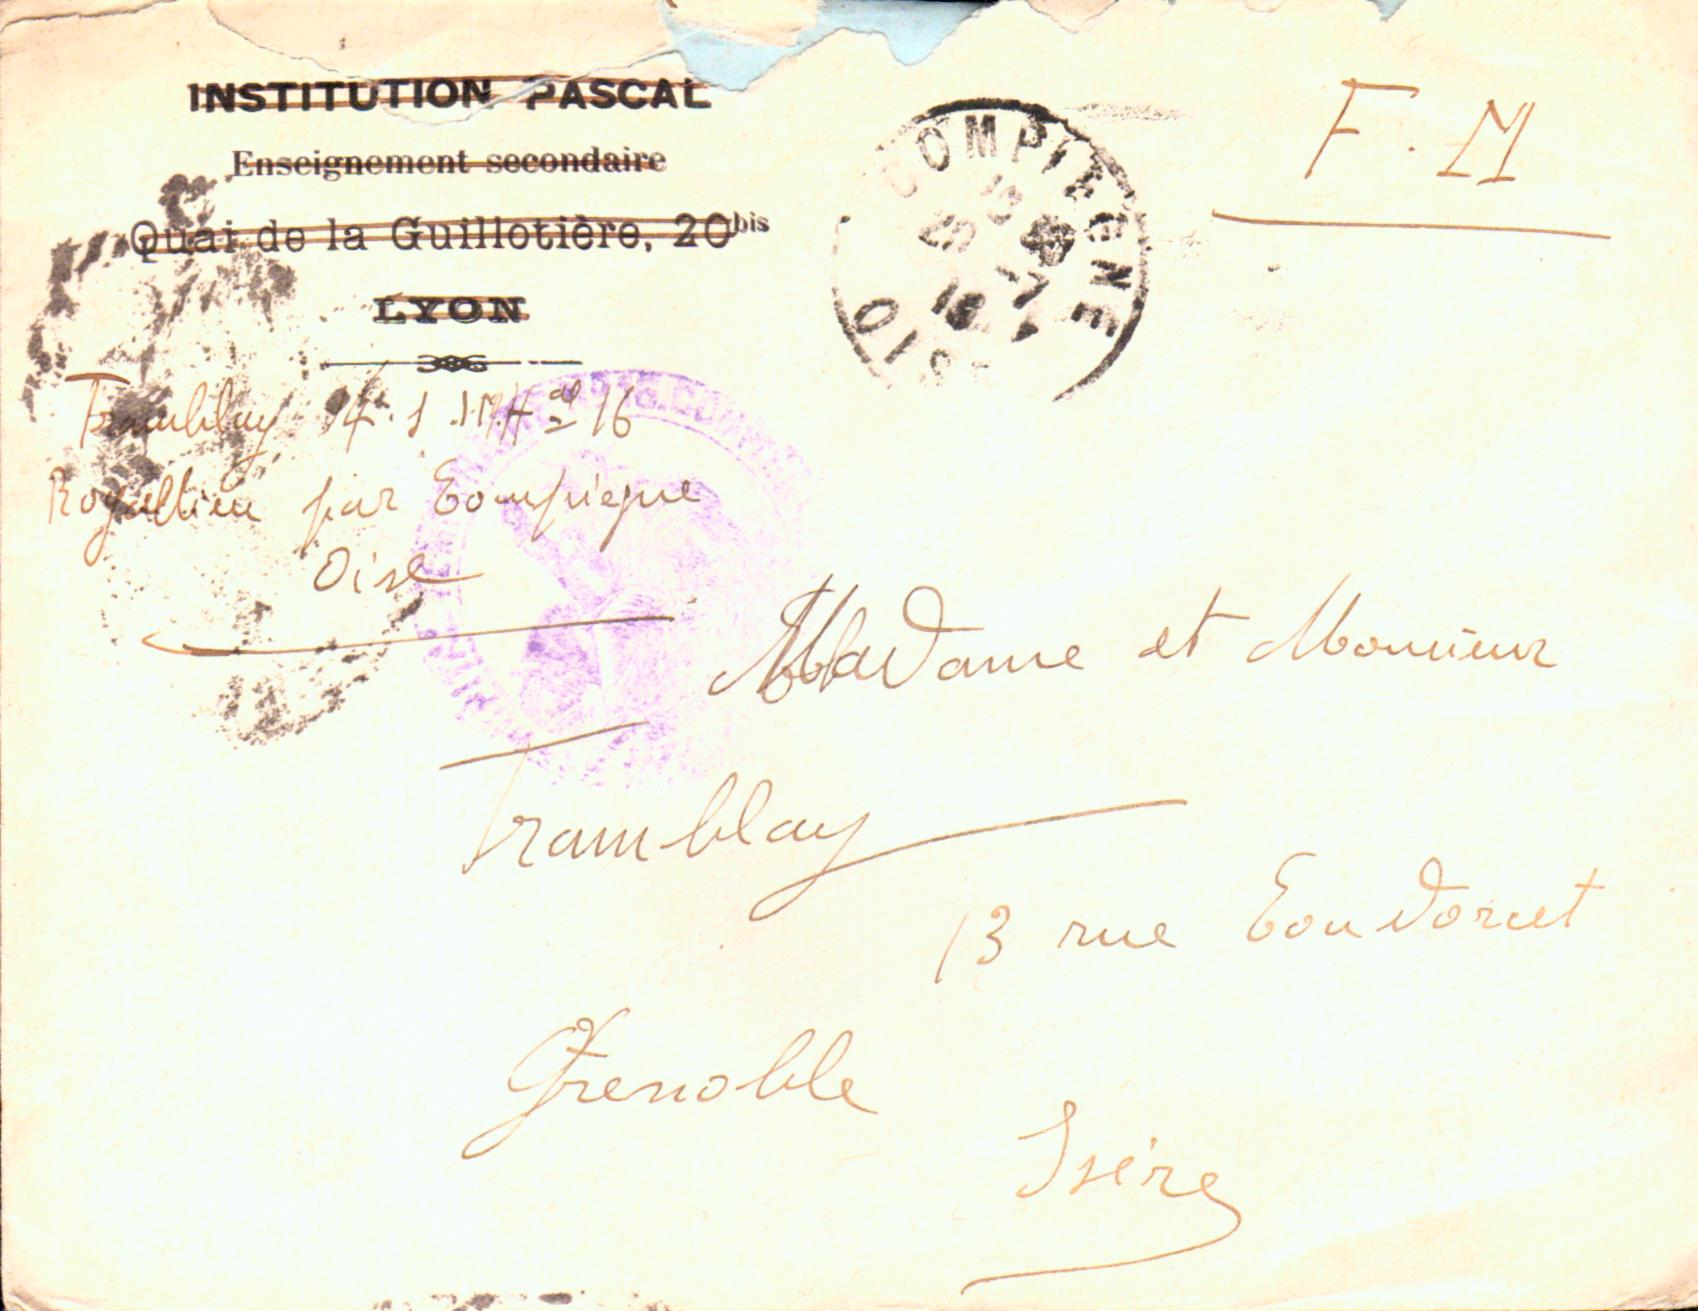 INSTITUTION PASCAL
Enseignement secondaire
Quai de la Guillotière, 20bis
LYON
F. M
COMPIEGNE
OISE
Tramblay
Royallieu par Compiegne
Oise
Madame et Monsieur
Tramblay
13 rue Condorcet
Grenoble
Isère